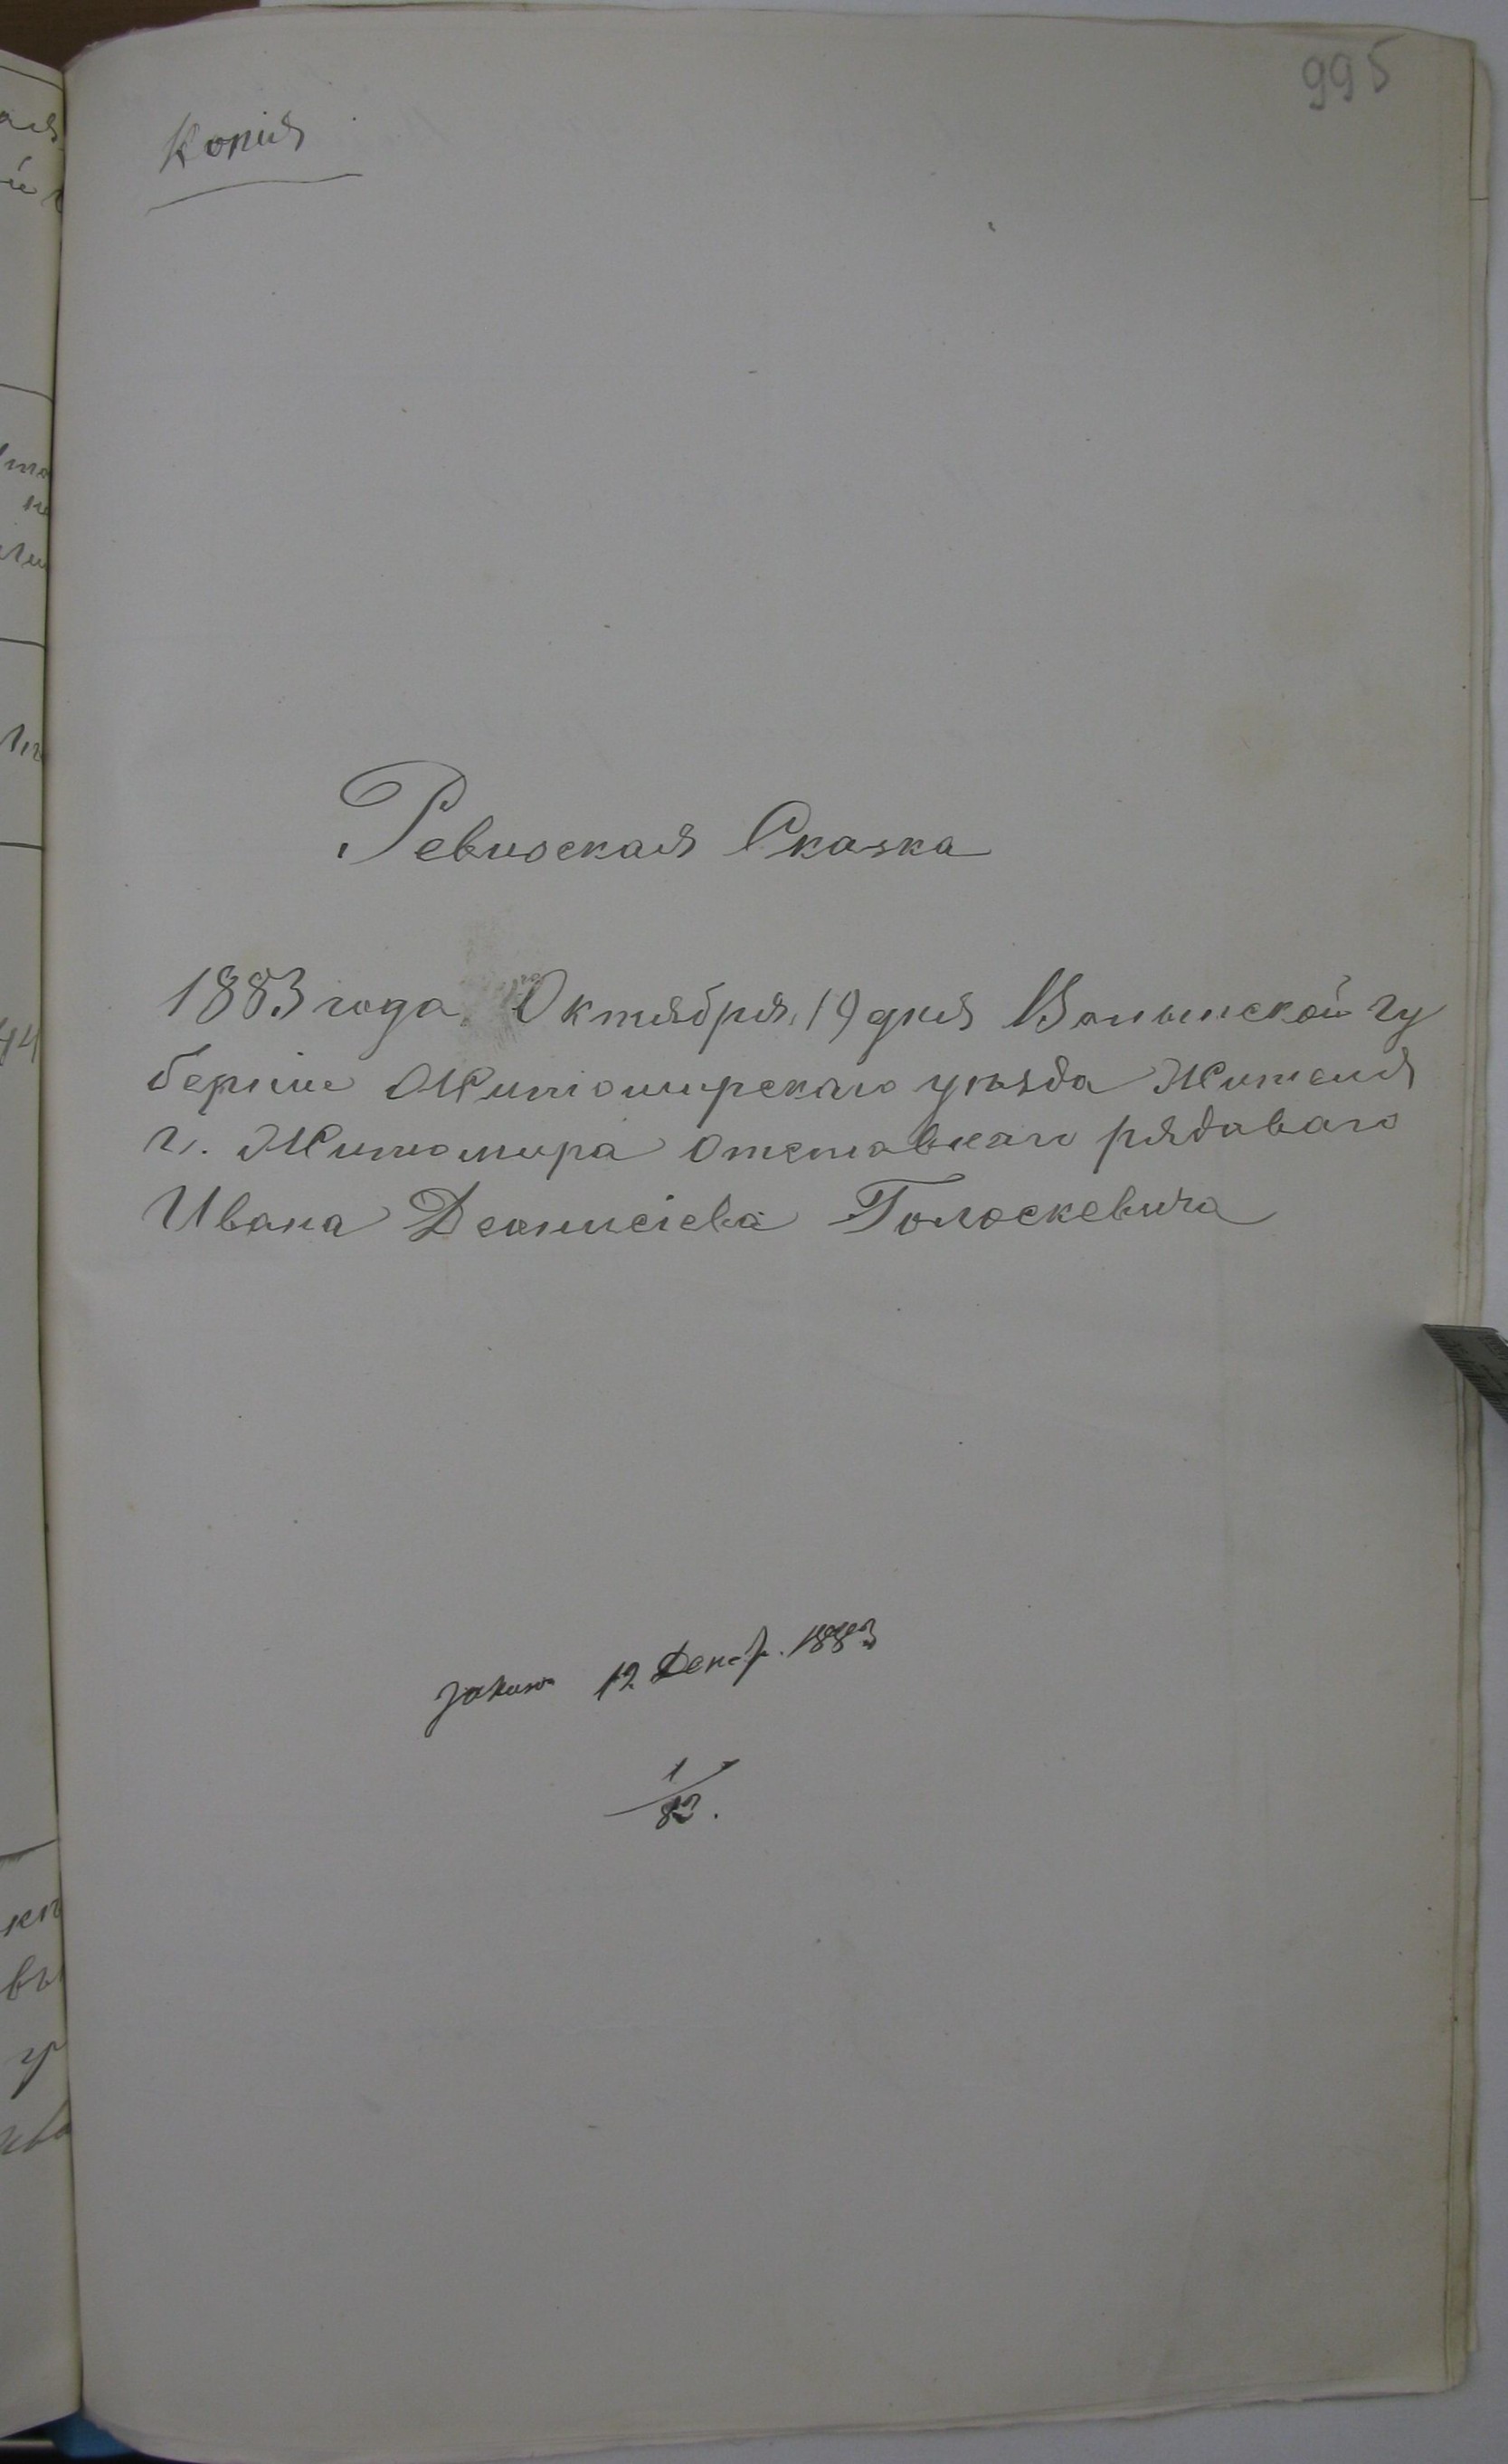 995
Копія
Ревизская Сказка
1883 года. Октября 19 дня Волынской гу
берніи Житомирскаго уѣзда Жителя
г. Житомира Отставнаго рядоваго
Ивана Деонисіева Голоскевича
12 Декабр. 1883
1/82.